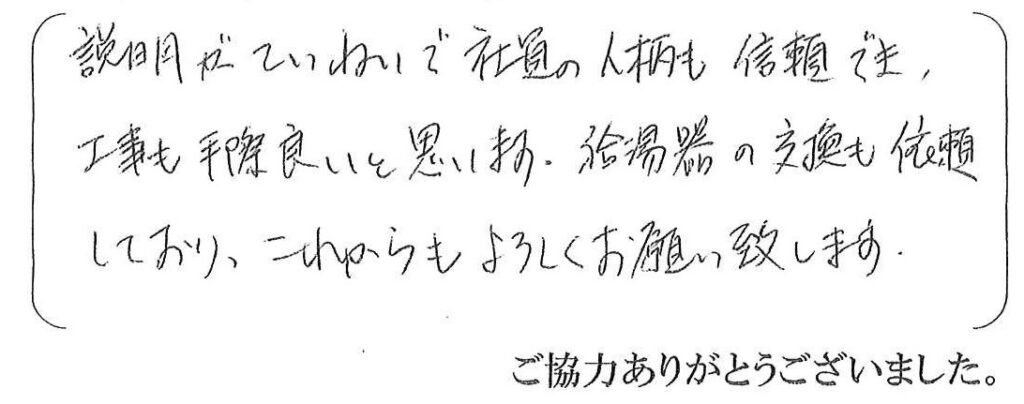 説明がていねいで社員の人柄も信頼でき、
工事も手際良いと思います。給湯器の交換も依頼
しており、これからもよろしくお願い致します。
ご協力ありがとうございました。